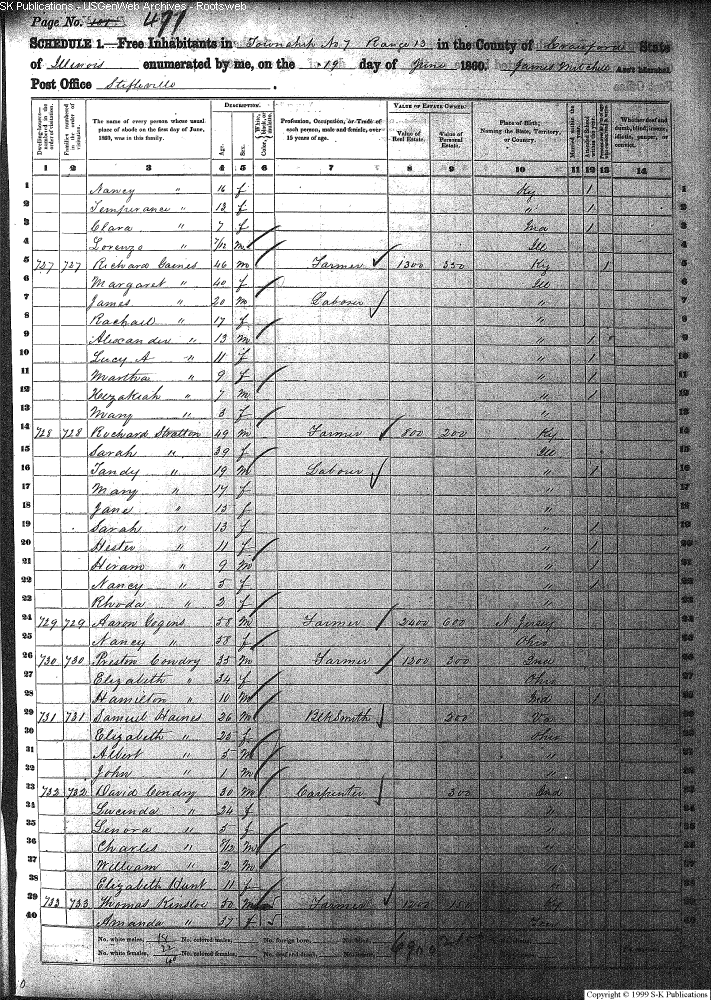 SK Publications - USGenWeb Archives - Rootsweb
Page No. 477
SCHEDULE 1.—Free Inhabitants in Township No 7 Range 13 in the County of Crawford State
of Illinois enumerated by me, on the 19 day of June 1860. James Mitchell Ass't Marshal.
Post Office
Dwelling-houses—numbered in the order of visitation.
Families numbered in the order of visitation.
The name of every person whose usual place of abode on the first day of June, 1860, was in this family.
DESCRIPTION.
Age.
Sex.
Color, White, black, or mulatto.
Profession, Occupation, or Trade of each person, male and female, over 15 years of age.
VALUE OF ESTATE OWNED.
Value of Real Estate.
Value of Personal Estate.
Place of Birth, Naming the State, Territory, or Country.
Married within the year.
Attended School within the year.
Whether deaf and dumb, blind, insane, idiotic, pauper, or convict.
1 2 3 4 5 6 7 8 9 10 11 12 13 14
1 Nancy " 16 f Ky / 1
2 Temperance " 13 f " / 2
3 Clara " 7 f Ind / 3
4 Lorenzo " 7/12 m Ill 4
5 727 727 Richard Gaines 46 m Farmer 1300 350 Ky / 5
6 Margaret " 40 f Ill 6
7 James " 20 m Labourer " 7
8 Rachail " 17 f " 8
9 Alexander " 13 m " / 9
10 Lucy A " 11 f " / 10
11 Martha " 9 f " / 11
12 Hezakiah " 7 m " / 12
13 Mary " 3 f " 13
14 728 728 Richard Stratton 49 m Farmer 800 200 Ky 14
15 Sarah " 39 f Ill 15
16 Tandy " 19 m Labour " / 16
17 Mary " 17 f " 17
18 Jane " 15 f " 18
19 Sarah " 13 f " / 19
20 Hester " 11 f " / 20
21 Hiram " 9 m " / 21
22 Nancy " 5 f " / 22
23 Rhoda " 2 f " 23
24 729 729 Aaron Gogins 58 m Farmer 2400 600 N Jersey 24
25 Nancy " 58 f Ohio 25
26 730 730 Preston Condry 35 m Farmer 1200 300 Ind 26
27 Elizabeth " 34 f Ohio 27
28 Hamilton " 10 m Ind / 28
29 731 731 Samuel Haines 26 m Blksmith 200 Va 29
30 Elizabeth " 23 f Ohio 30
31 Albert " 5 m " 31
32 John " 1 m " 32
33 732 732 David Condry 30 m Carpenter 300 Ind 33
34 Lucenda " 24 f " 34
35 Lenora " 5 f " 35
36 Charles " m " 36
37 William " 2 m " 37
38 Elizabeth Hunt 11 f " 38
39 733 733 Thomas 50 m Farmer 1200 Ky 39
40 Amanda " 37 f 40
No. white males, 18 No. colored males, No. foreign born, No. blind,
No. white females, 22 No. colored females, No. deaf and dumb, No. insane,
40
Copyright © 1999 S-K Publications